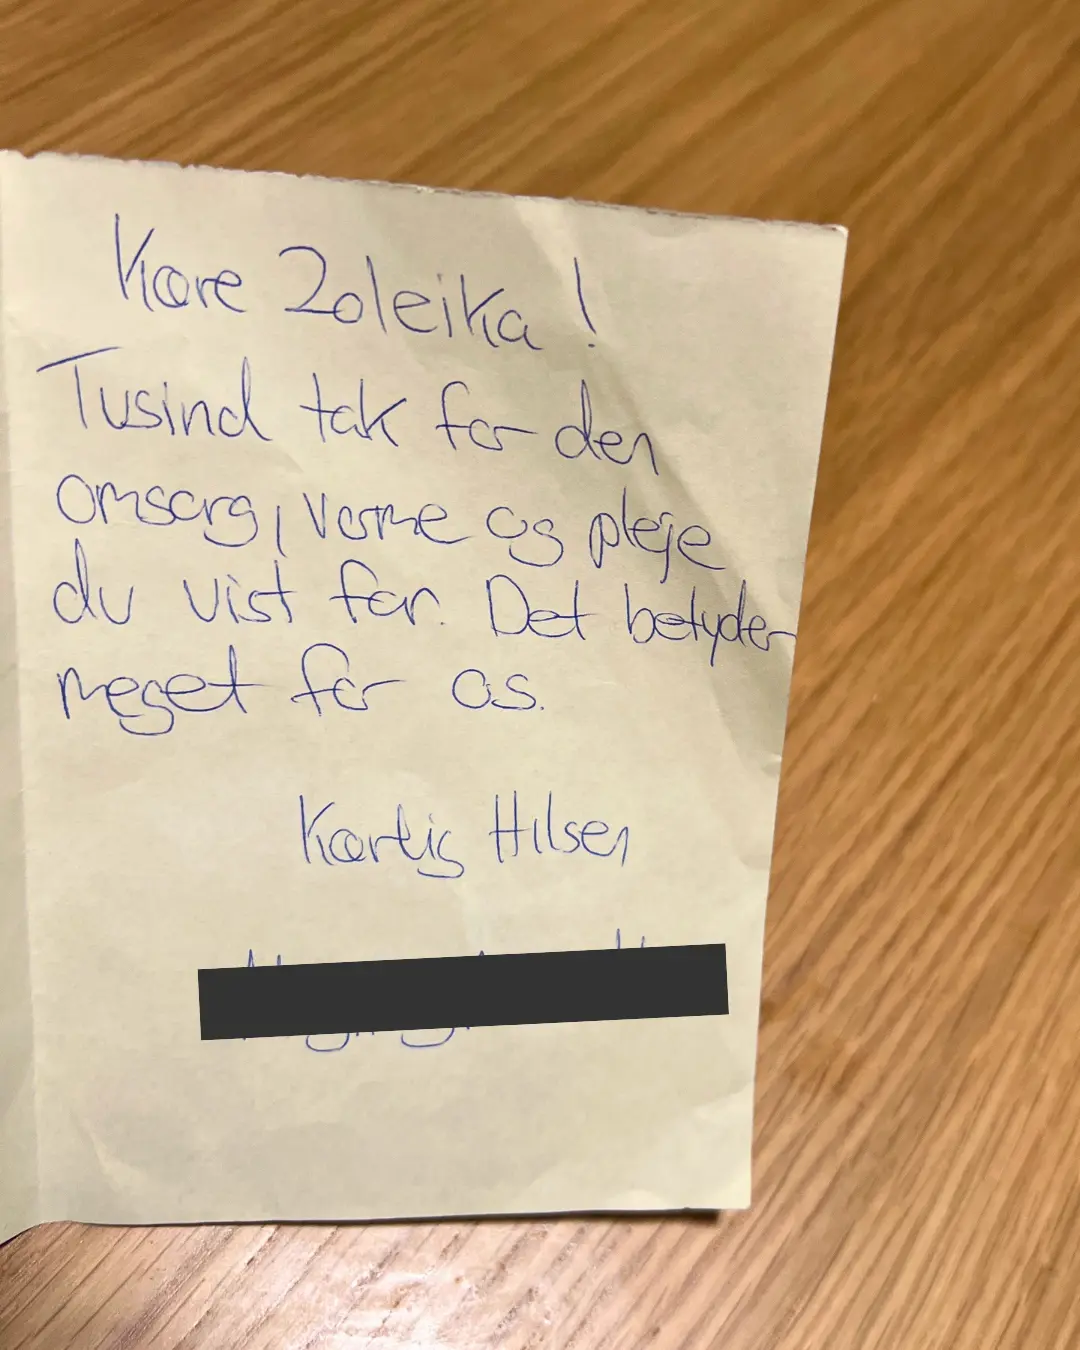 Kære Zoleika!
Tusind tak for den
omsorg, varme og pleje
du vist far. Det betyder
meget for os.
Kærlig Hilsen